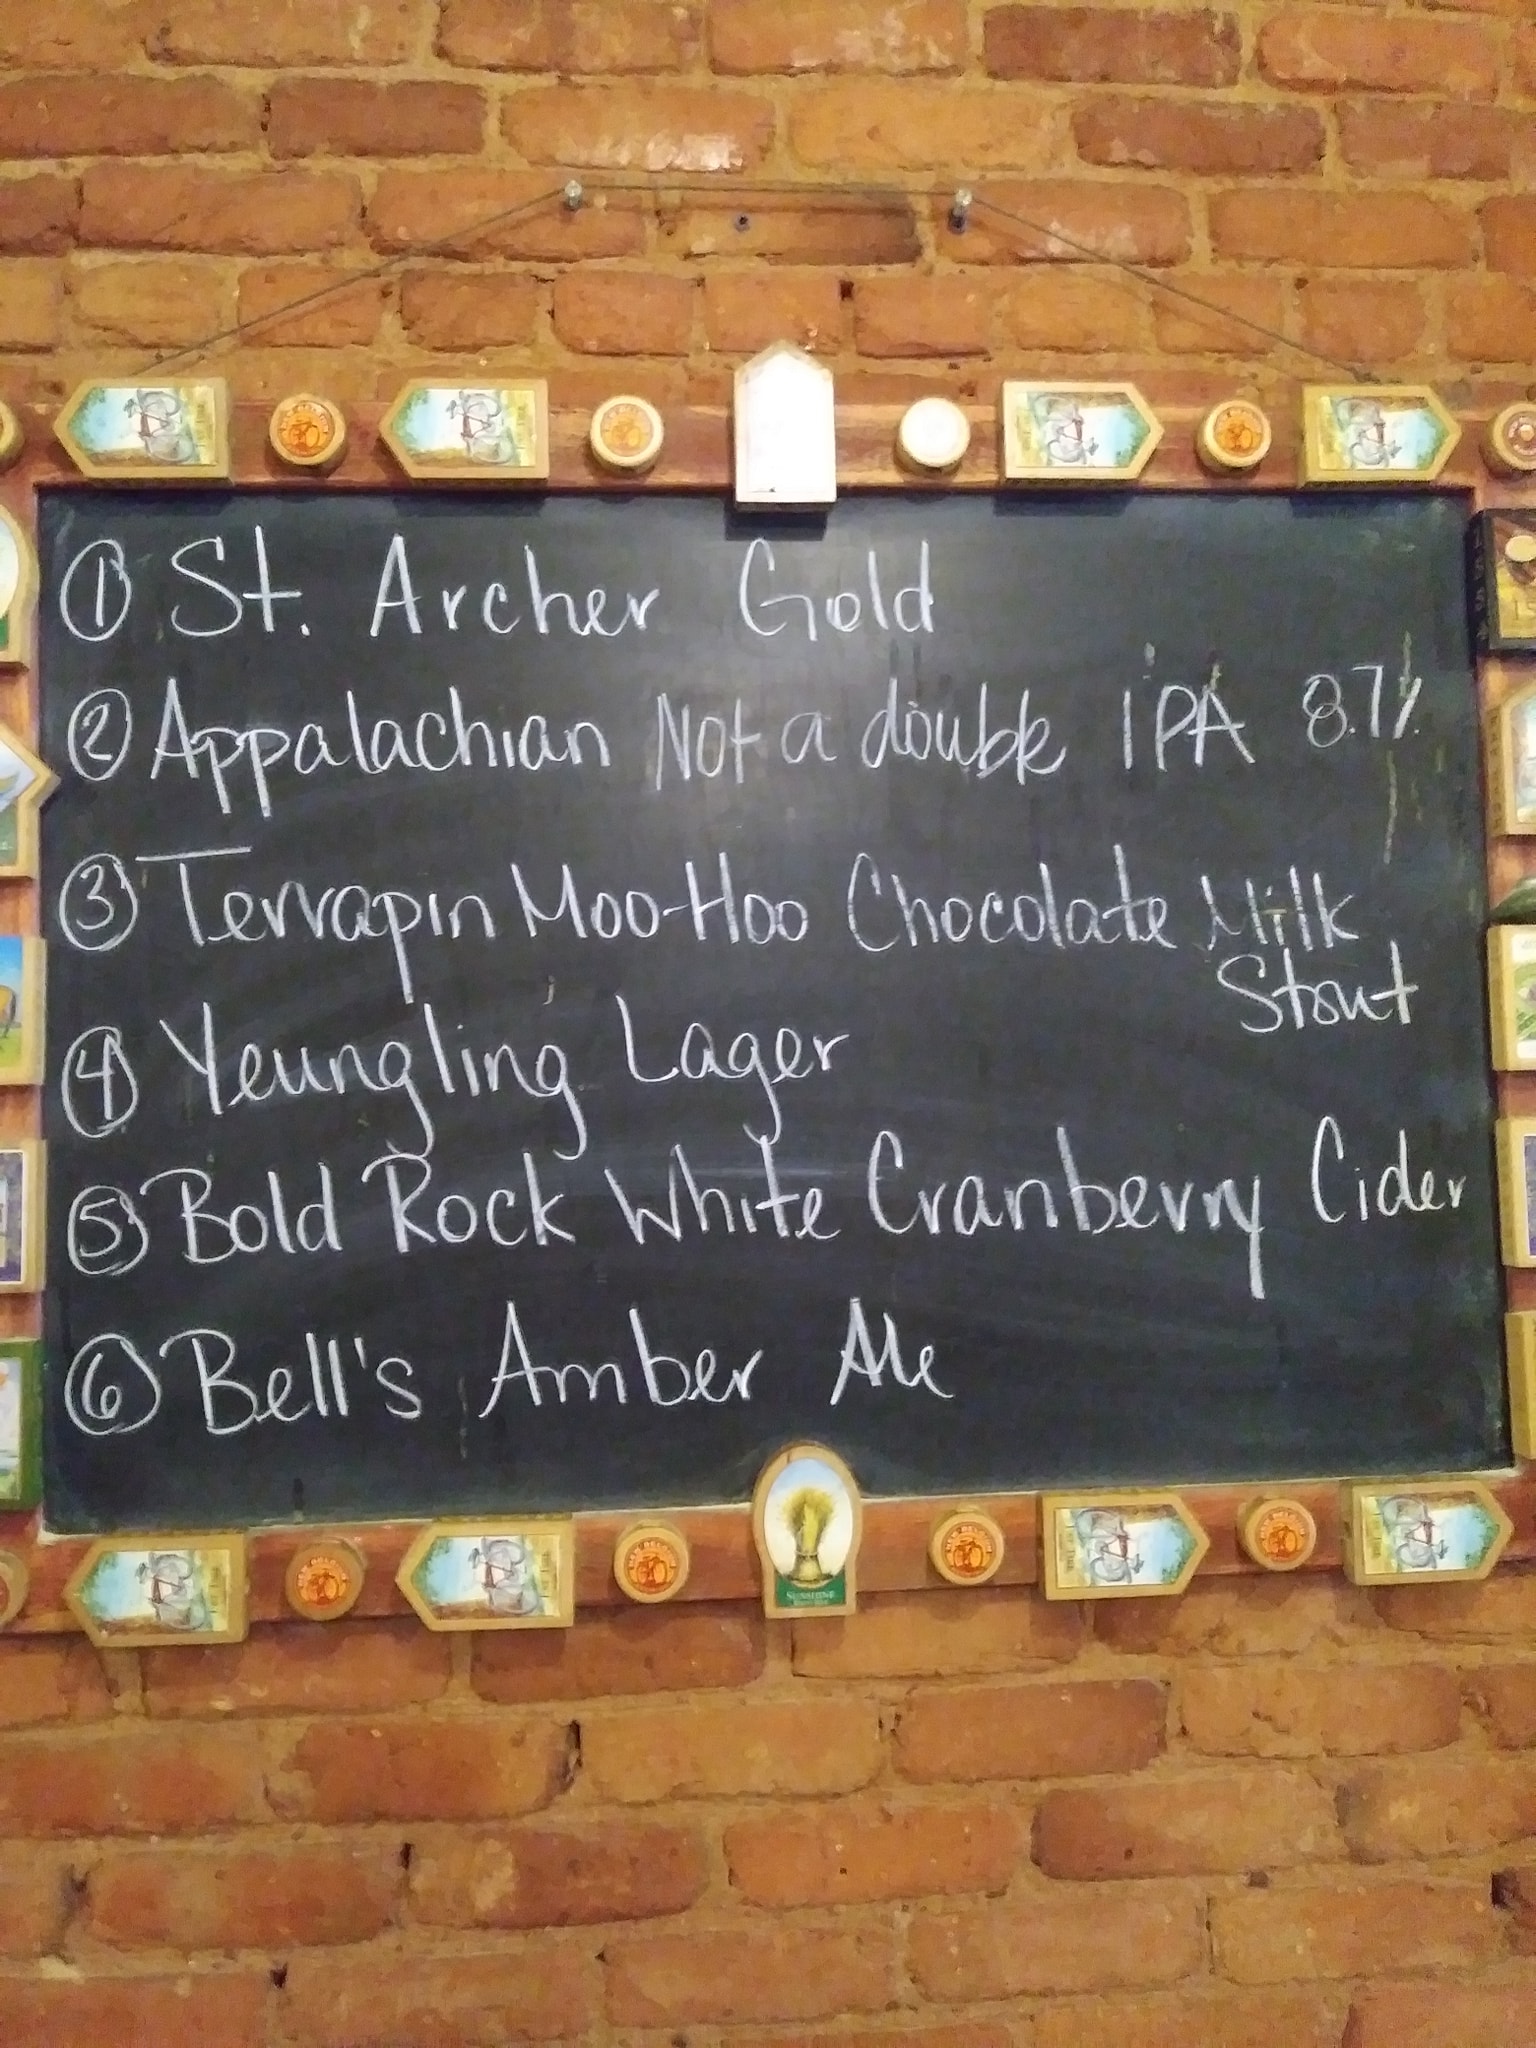 ① St. Archer Gold
② Appalachian Not a double IPA 8.7%
③ Terrapin Moo-Hoo Chocolate Milk
Stout
④ Yeungling Lager
⑤ Bold Rock White Cranberry Cider
⑥ Bell's Amber Ale
SUNSHINE